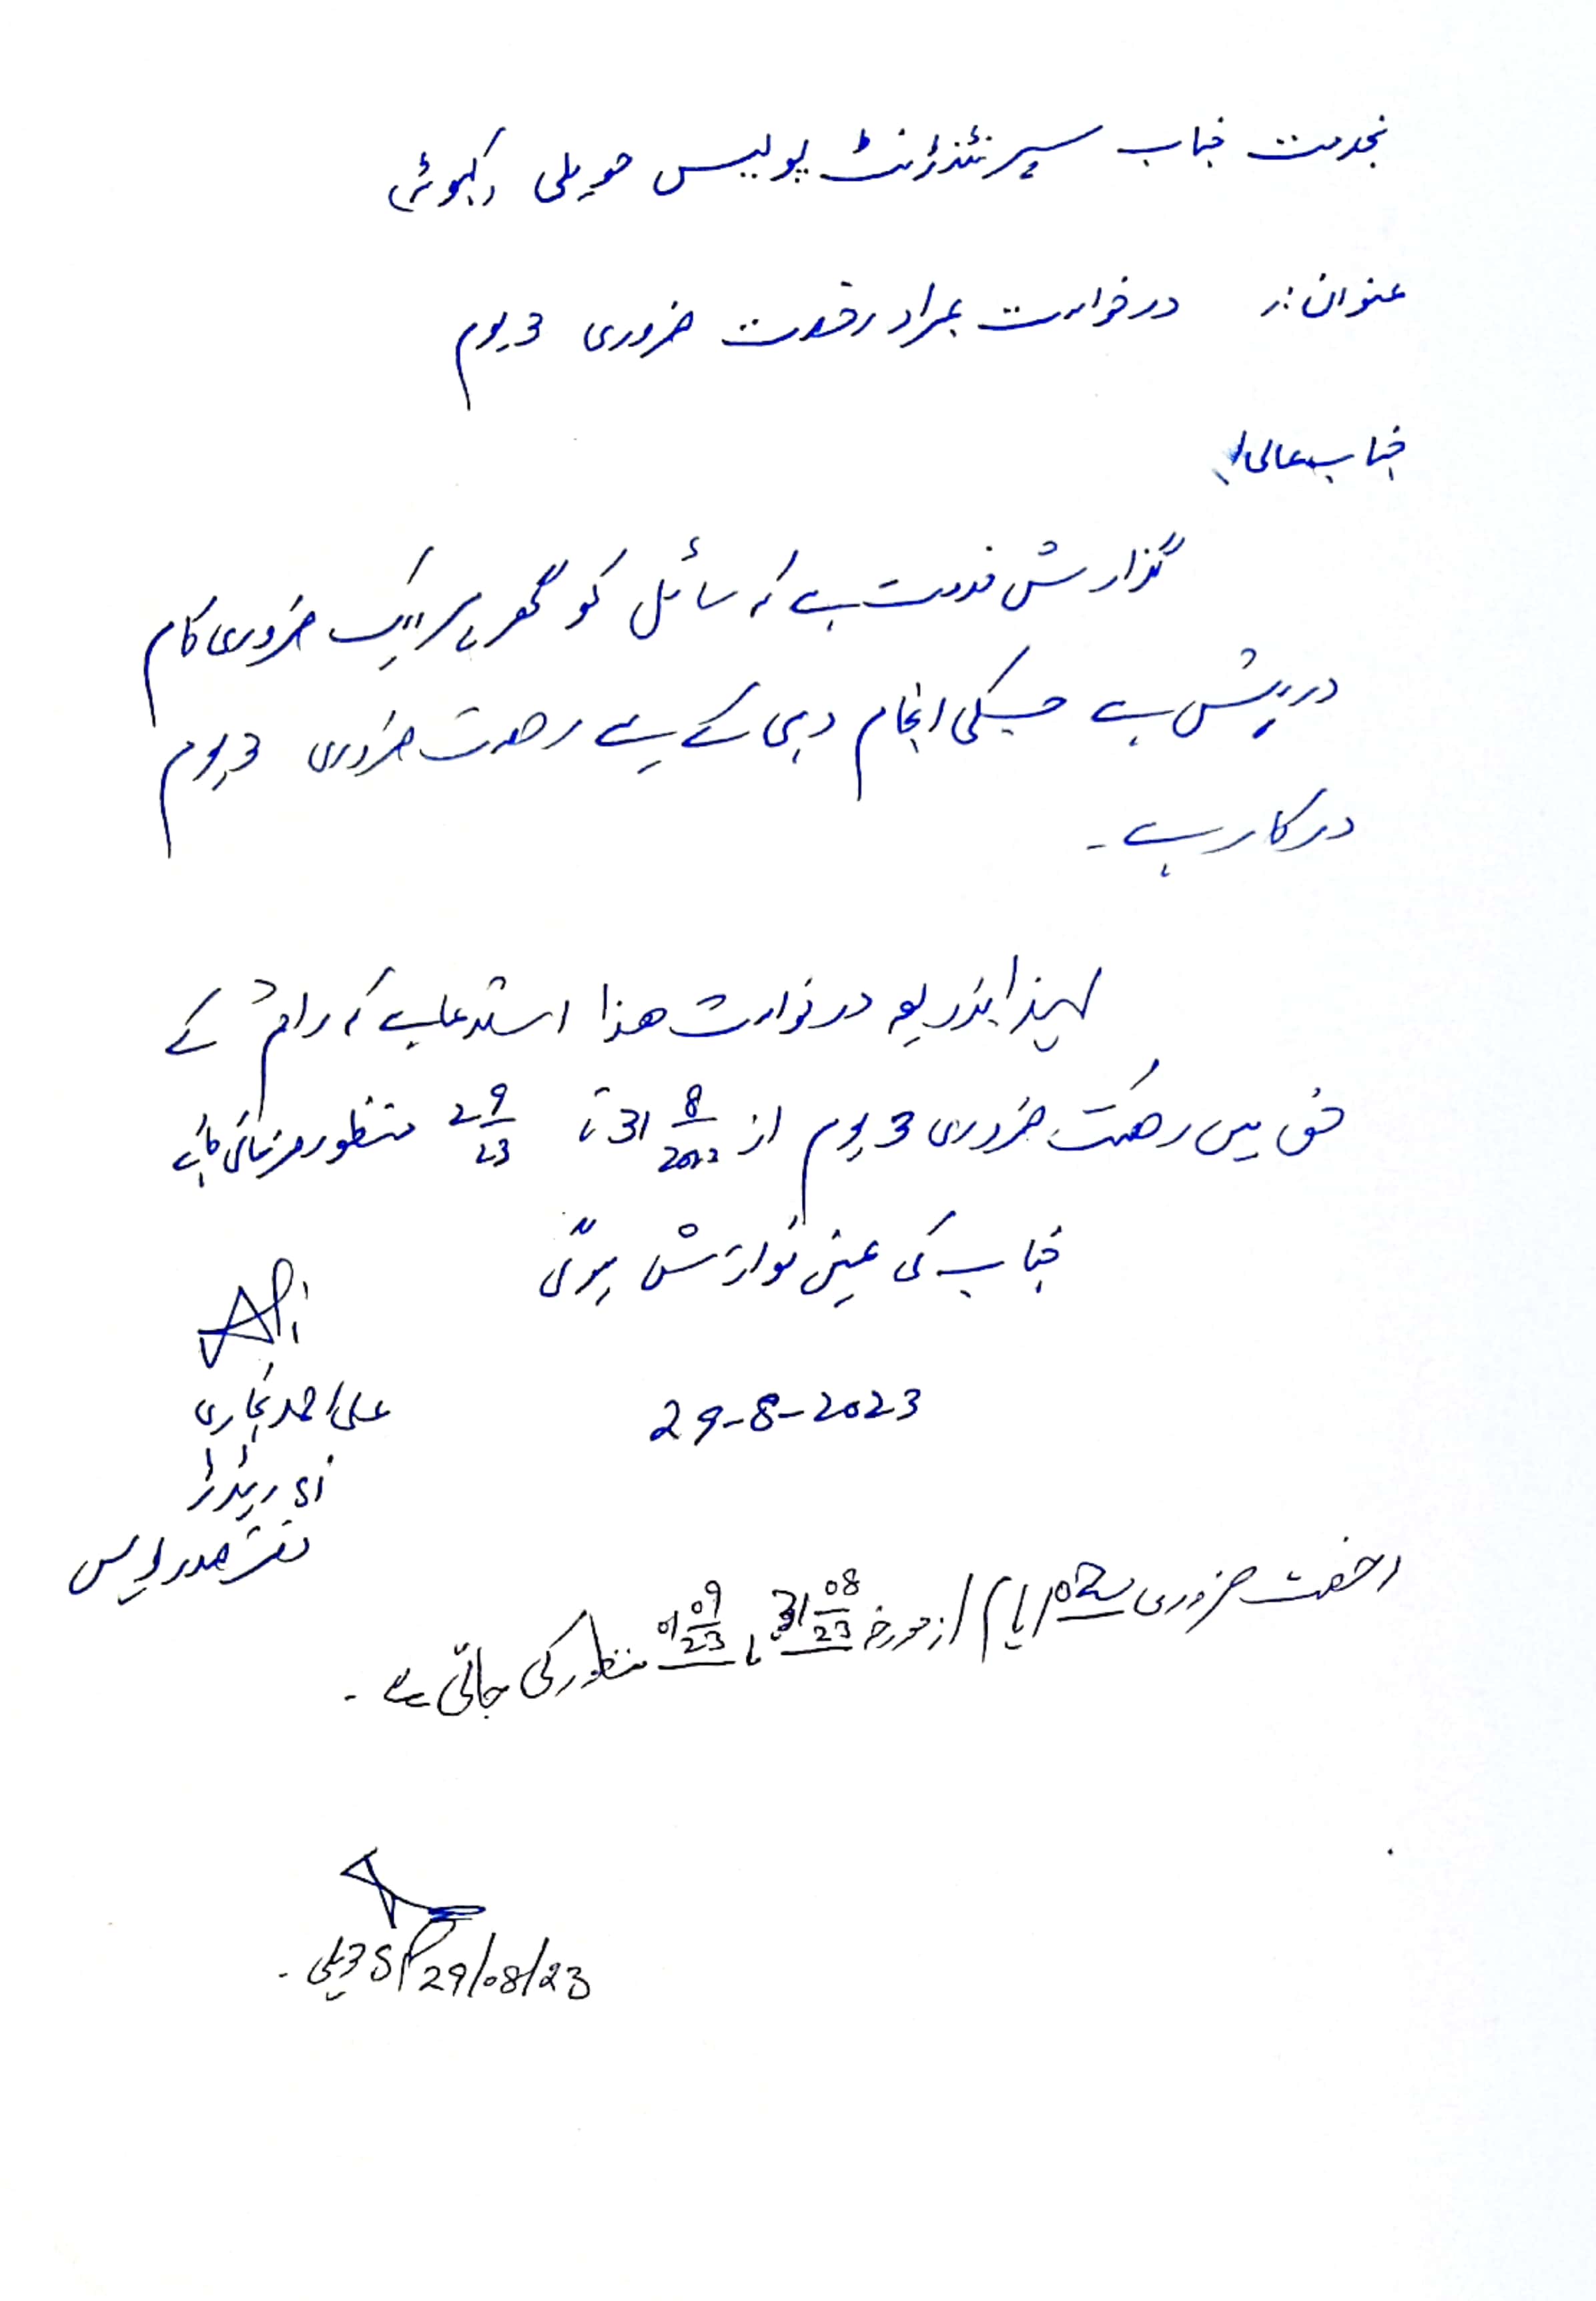 بخدمت جناب سپرنٹنڈنٹ پولیس حویلی (کہوٹہ)
عنوان:۔ درخواست بمراد رخصت ضروری 3 یوم
جناب عالی!
گزارش خدمت ہے کہ سائل کو گھر پر ایک ضروری کام
درپیش ہے جسکی انجام دہی کے لیے رخصت ضروری 3 یوم
درکار ہے۔
لہذا بذریعہ درخواست ھذا استدعا ہے کہ راقم کے
حق میں رخصت ضروری 3 یوم از 31 8/2023 تا 2 9/23 منظور فرمائی جائے
جناب کی عین نوازش ہوگی
علی احمد بخاری
29-8-2023
ریڈر
دفتر صدر پولیس
رخصت ضروری 02 ایام از مورخہ 31 08/23 تا 01 09/23 منظور کی جاتی ہے۔
SP حویلی۔
29/08/23